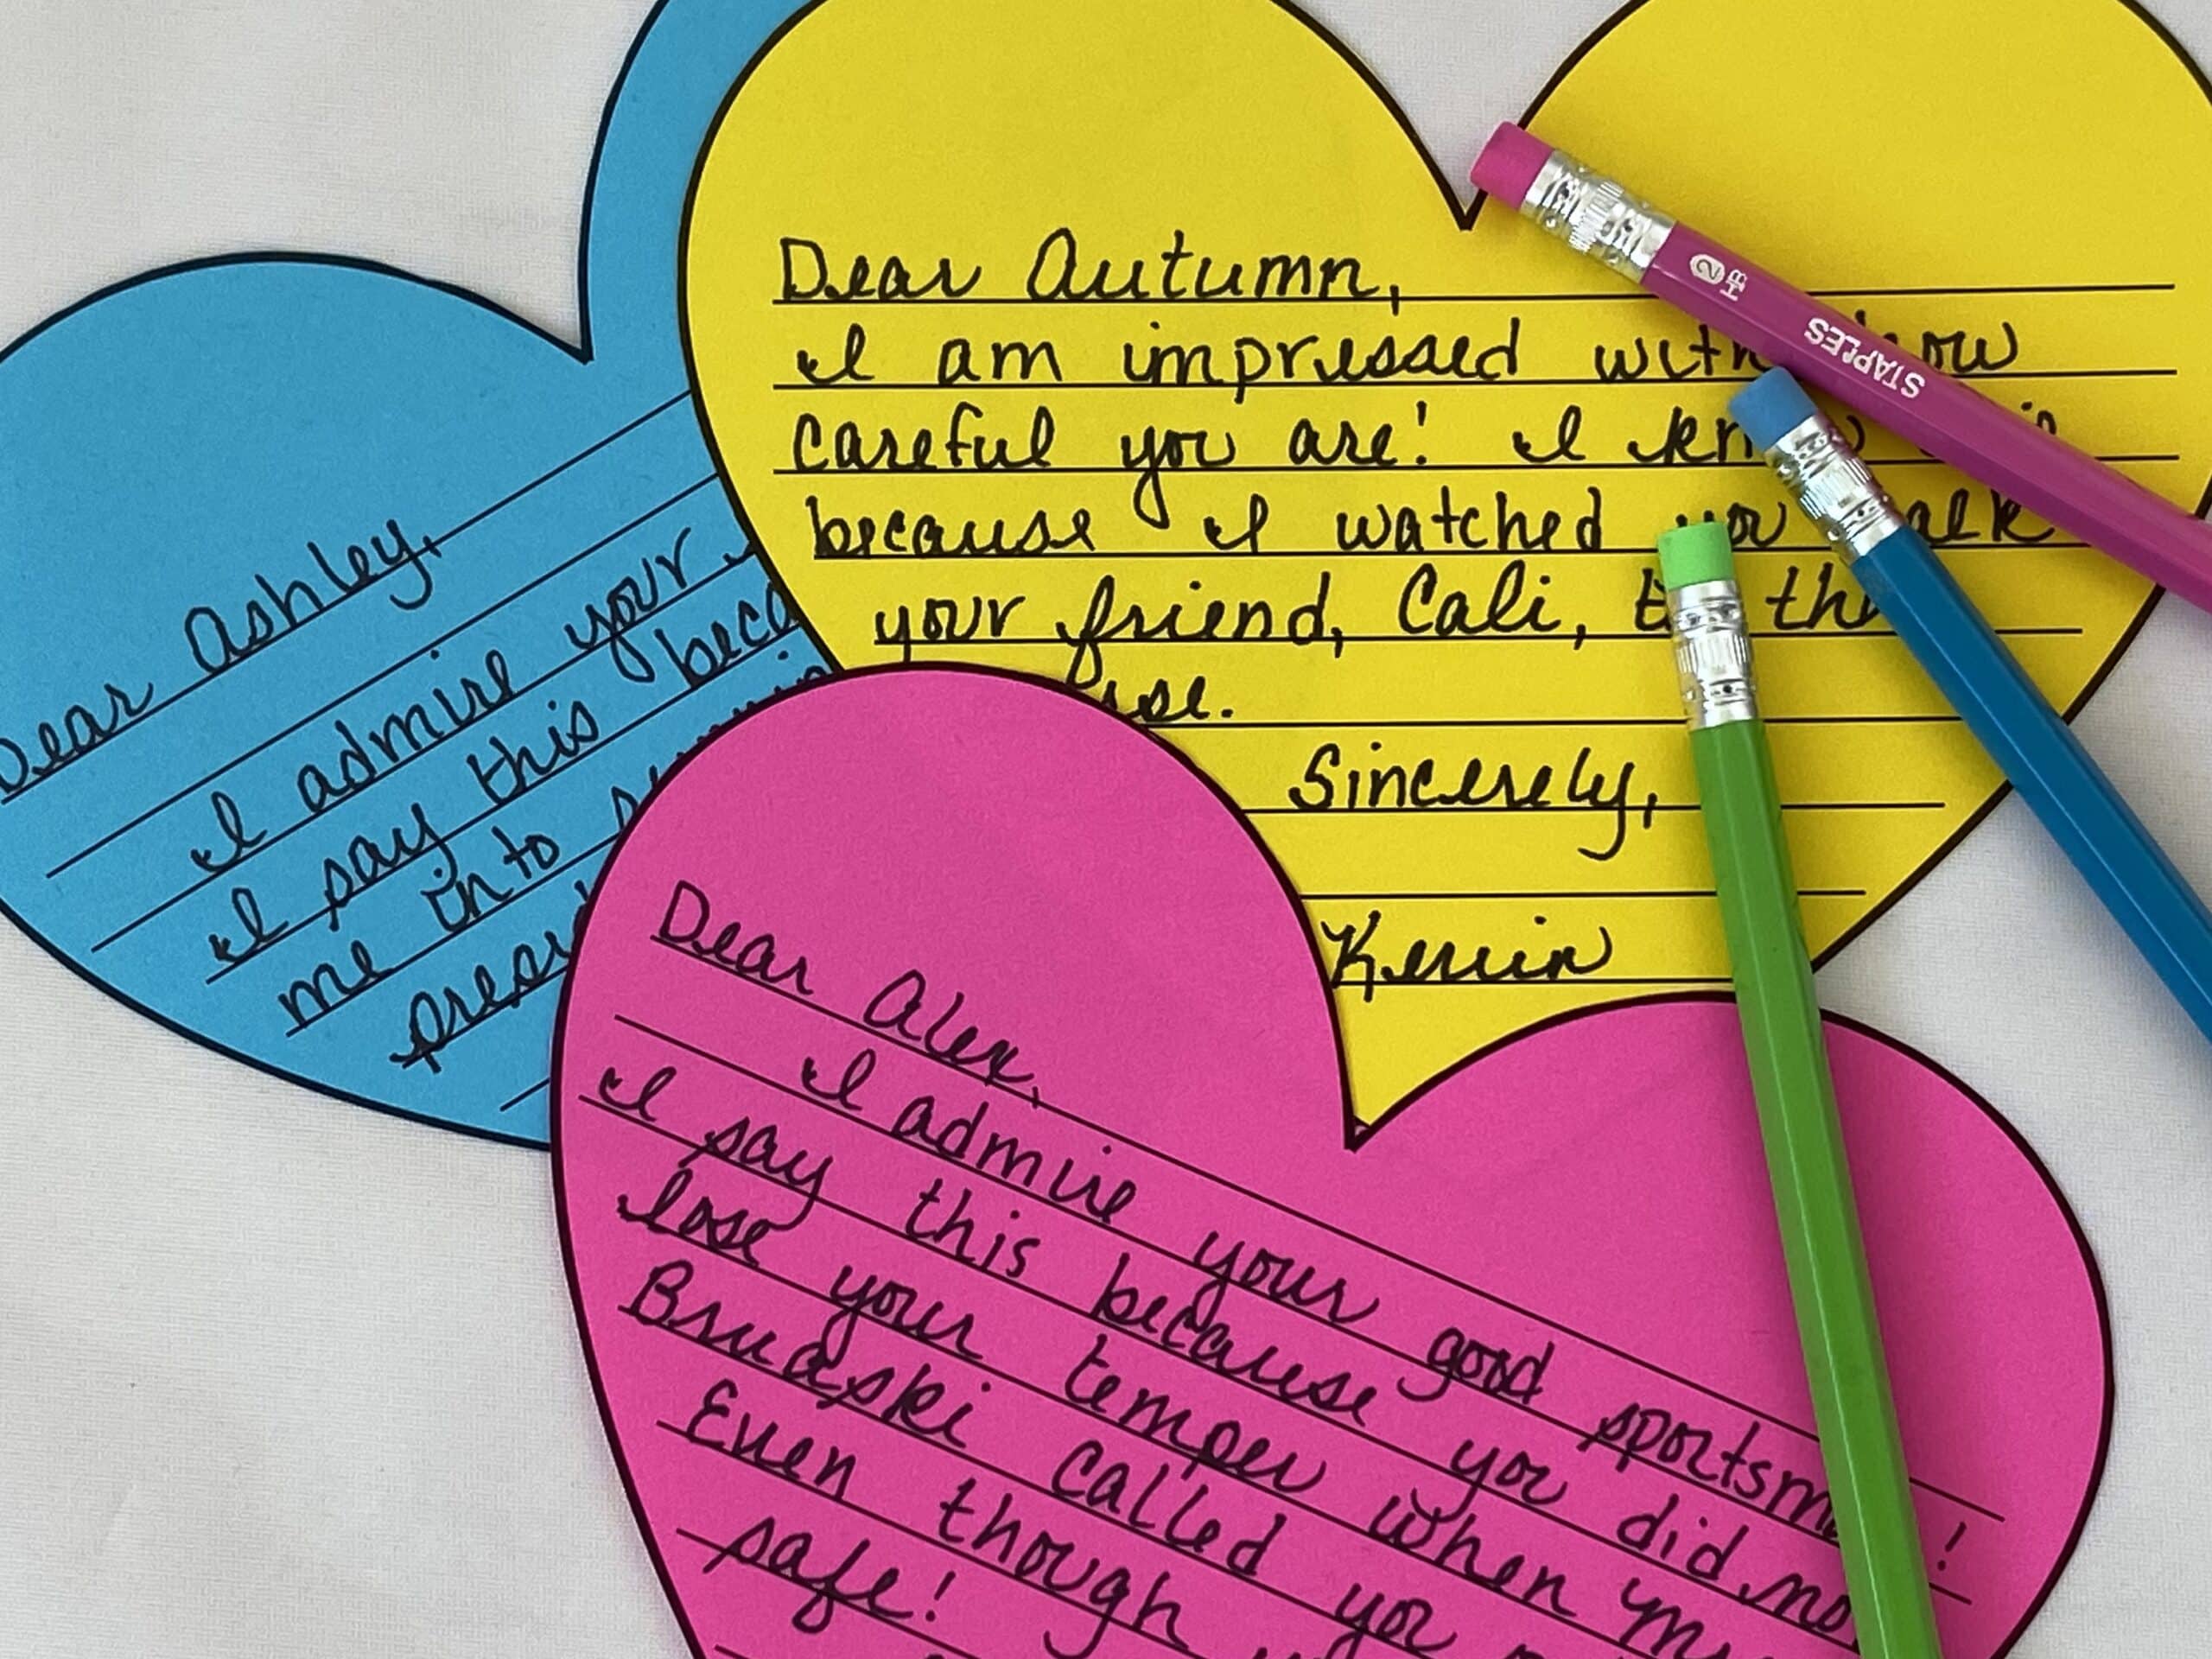 Dear Autumn,
I am impressed with how
careful you are! I know
because I watched you walk
your friend, Cali, to the
Sincerely,
Kevin
Dear Ashley,
I admire your
I say this
me into
Dear Alex,
I admire your good
I say this because you did
lose your temper when
Bruaski called you
Even though
safe!
STAPLES
2
HB